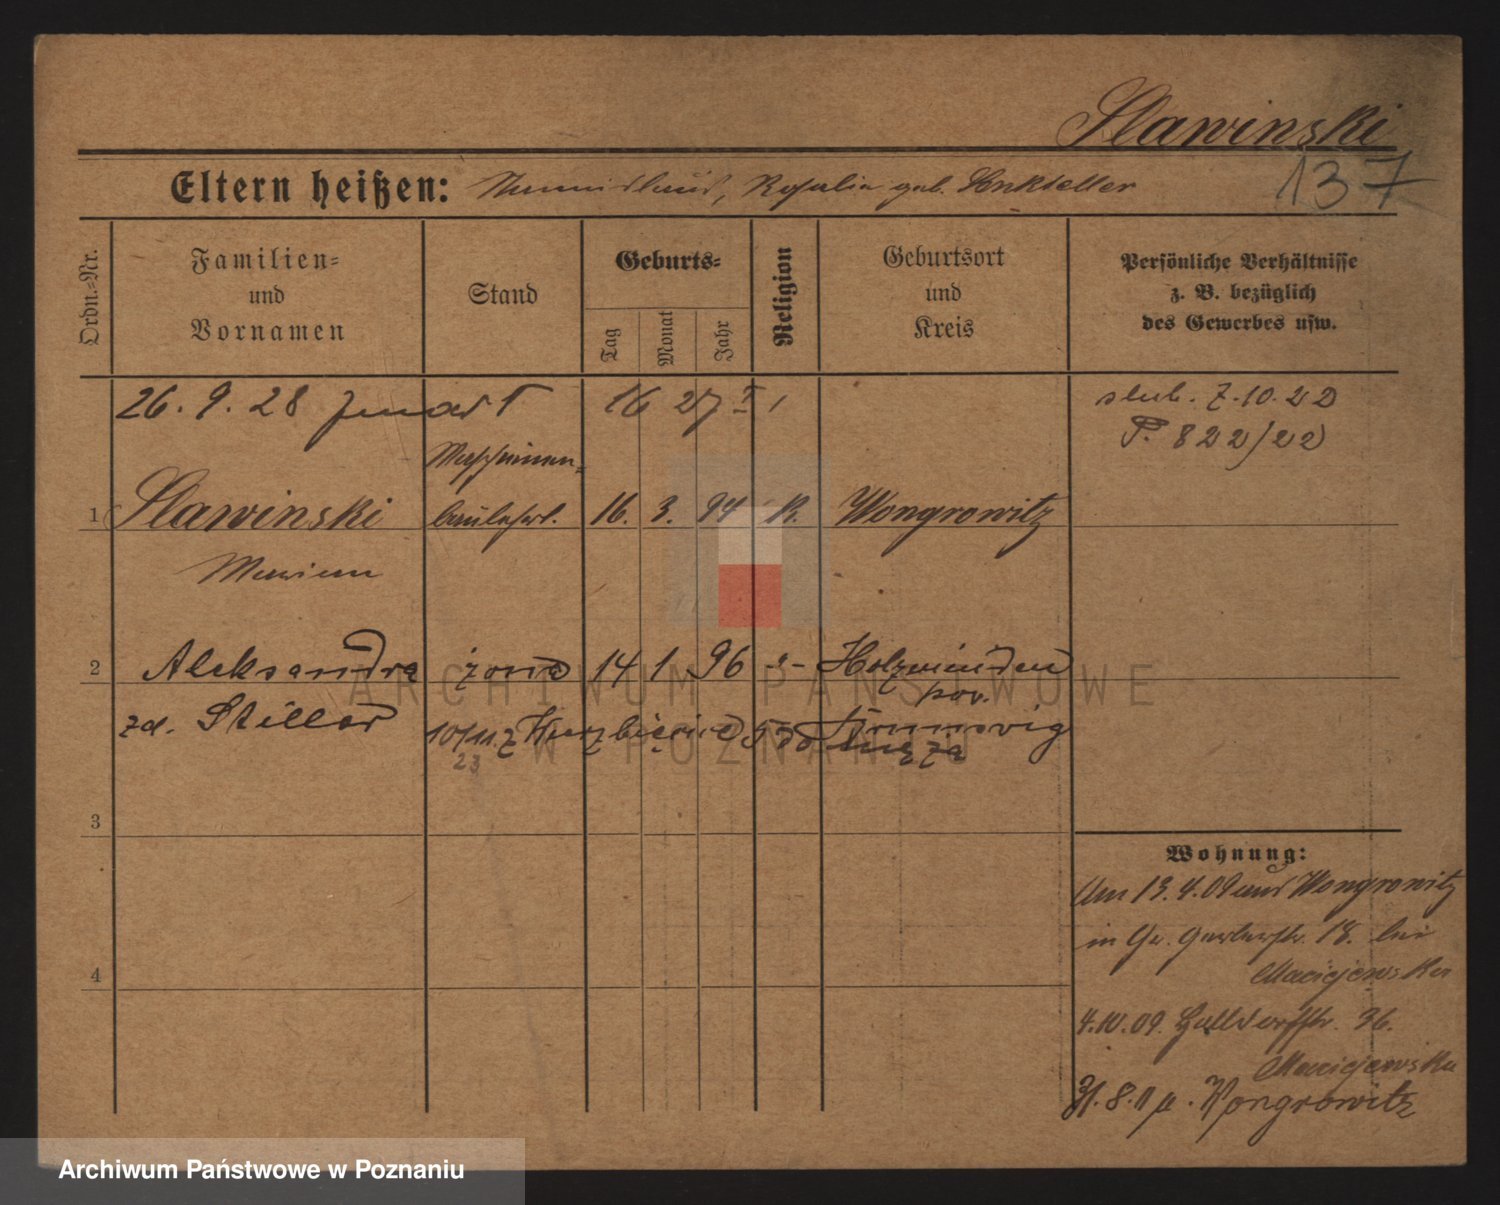 Slawinski
137
Eltern heißen: Rosalia geb. Senkteller
Ordn.-Nr.
Familien-
und
Vornamen
Stand
Geburts-
Tag
Monat
Jahr
Religion
Geburtsort
und
Kreis
Persönliche Verhältnisse
z. B. bezüglich
des Gewerbes usw.
26. 9. 28 16 27
slub. 7.10.22
P. 822/22
Maschinen-
1 Slawinski baulehrl. 16. 3. 94 K. Wongrowitz
Marian
2 Aleksandra żona 14 1. 96 -"- Holzminden
pow.
zd. Stiller 10/11 z do
23 męża
3
4
Wohnung:
Am 13.4.09 aus Wongrowitz
in Gr. Gerberstr. 18. bei
Maciejewska
4.10.09. Halbdorfstr. 36.
Maciejewska
31.8.11 n. Wongrowitz
ARCHIWUM PAŃSTWOWE
W POZNANIU
Archiwum Państwowe w Poznaniu